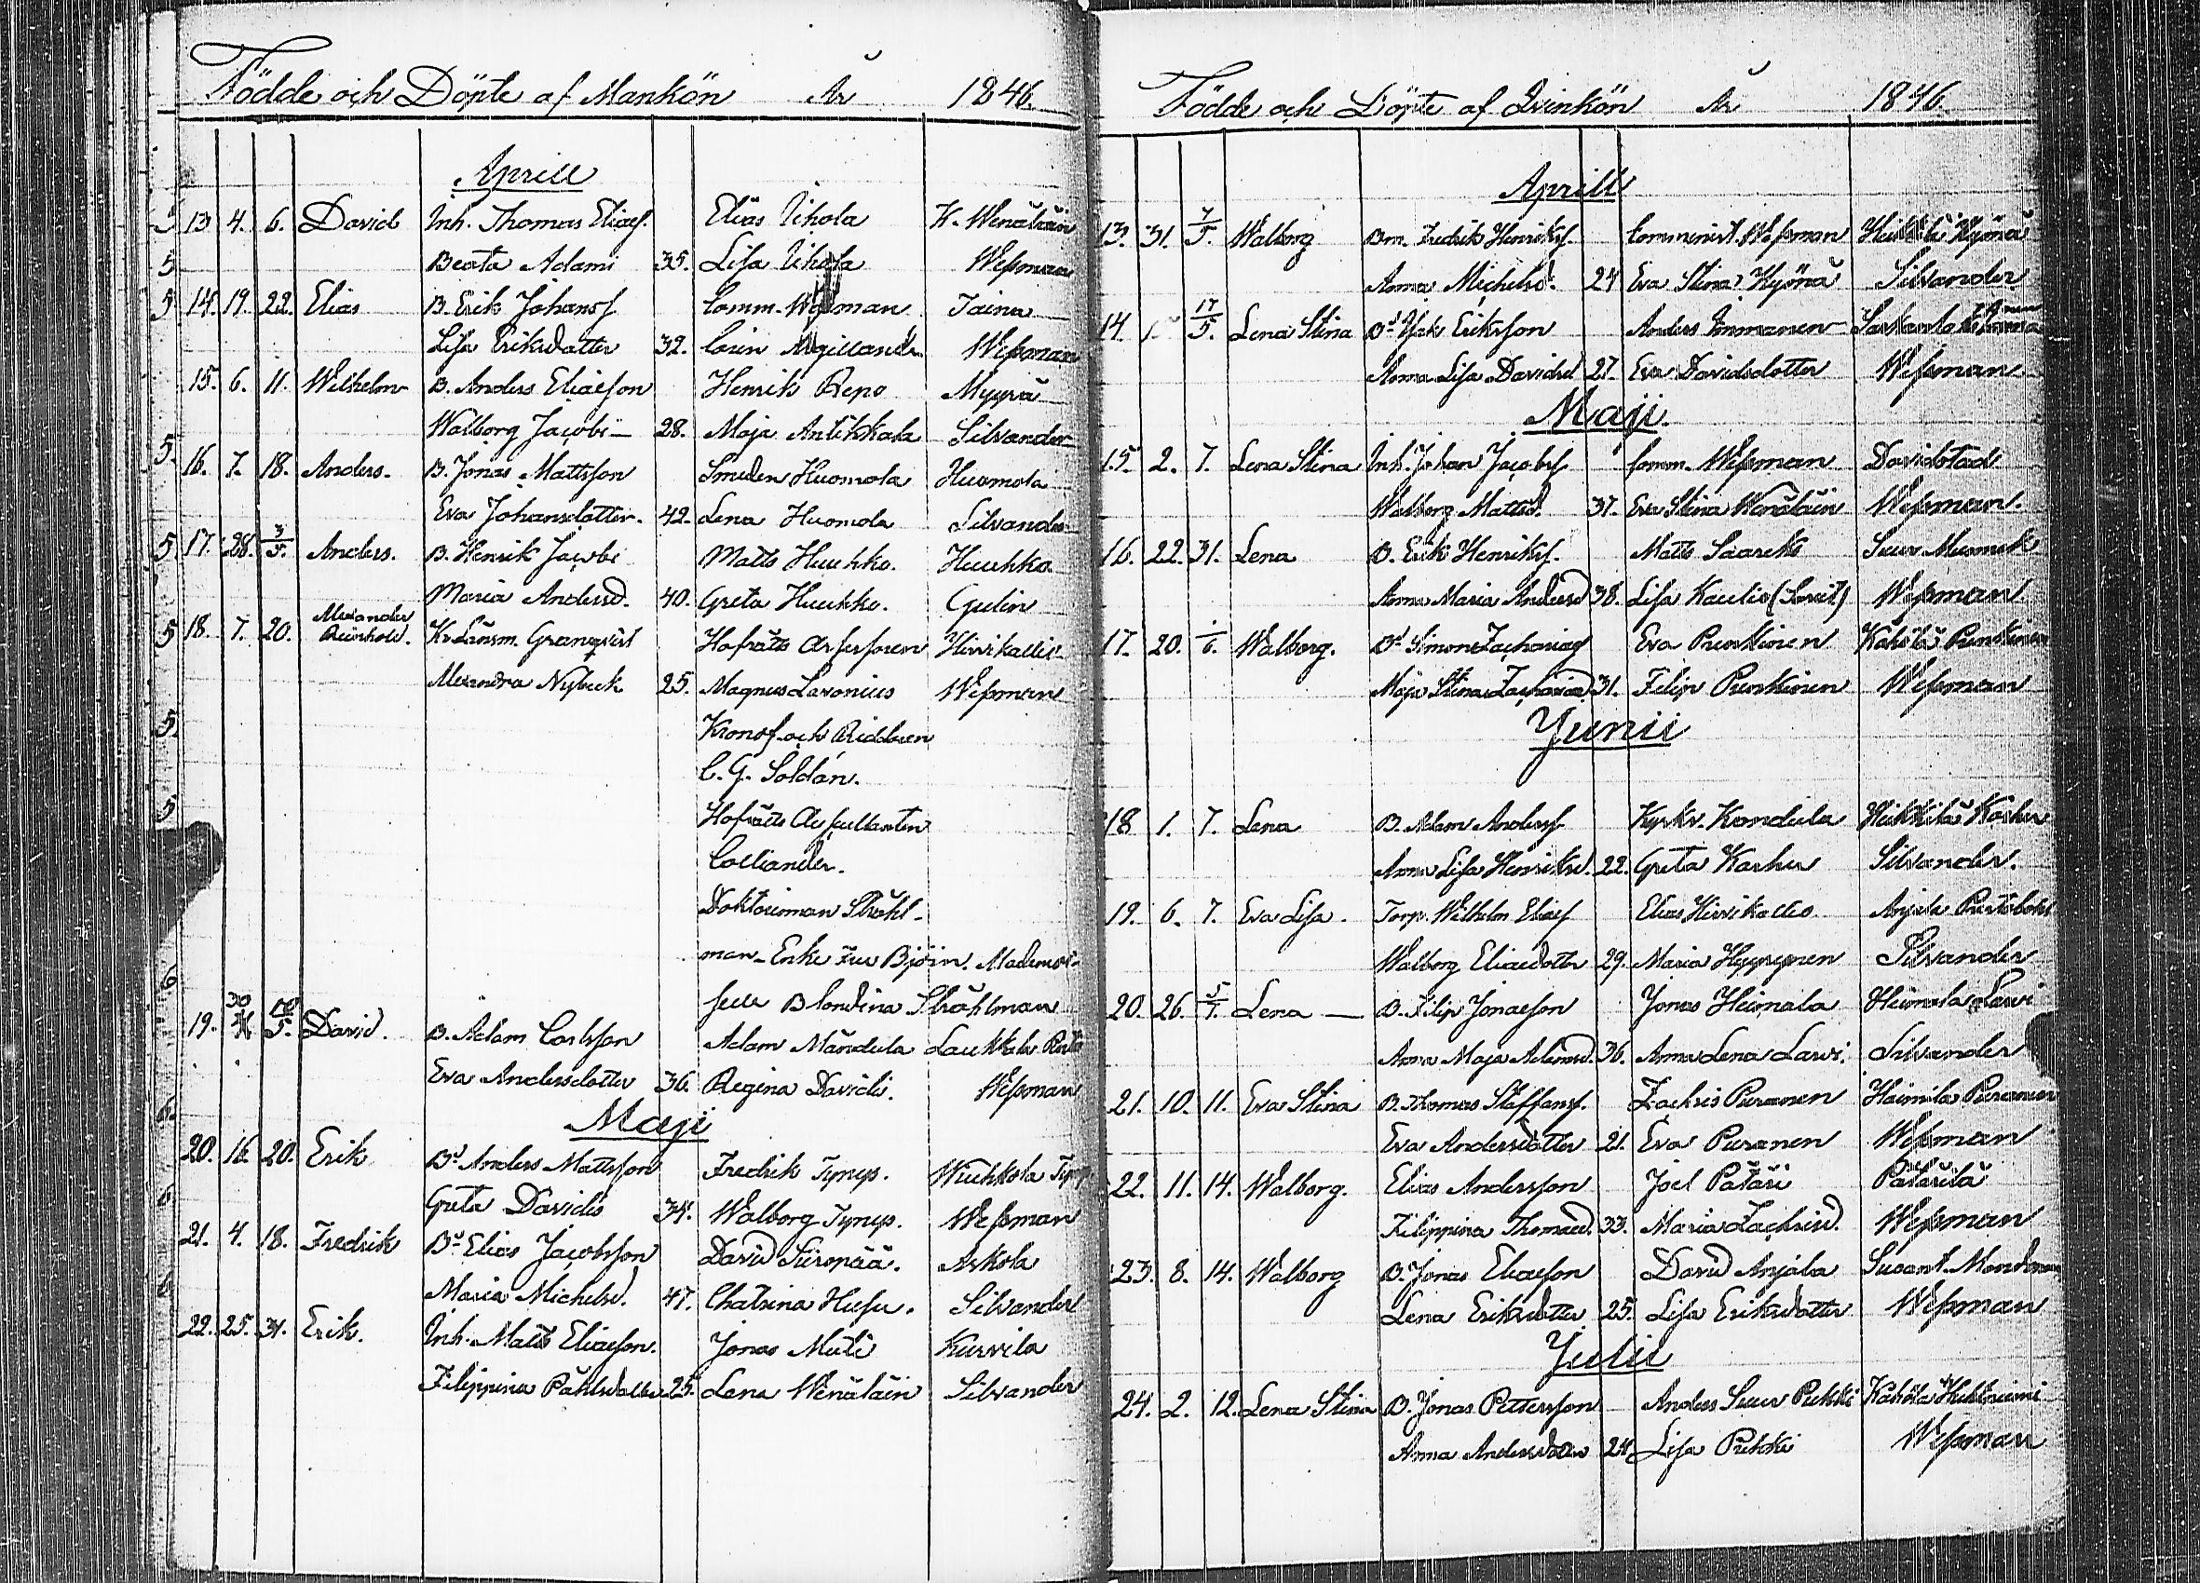 Födde och Döpte af Mankön År 1846.
Aprill
13 4. 6. David Inh. Thomas Eliaes. Elias Uhola W. Wenäläin
Beata Adami 35. Lisa Uhola Wessman
14. 19. 22. Elias B. Erik Johans. Comm. Wessman Taina
Lisa Eriksdotter 32. Carin Wessman
15. 6. 11. Wilhelm B. Anders Eliaesson Henrik Repo Myyrä
Walborg Jacobi 28. Maja Antikkala Silvander
16. 7. 18. Anders. B. Jonas Mattsson Smeden Huomola Huomola
Eva Johansdotter. 42. Lena Huomola Silvander
17. 28. 3/5. Anders. B. Henrik Jacobi Matts Huuhko. Huuhko.
Maria Andersd. 40. Greta Huuhko. Gulin
18. 7. 20. Alexander Reinhold. Kr. Länsm. Granqvist Hofrätts Hirvikallio
Alexandra Nybeck 25. Magnus Lavonius Wessman
Kronof. och Riddaren
C. G. Soldan.
Hofrätts Auscultanten
Colliander.
Doktorinnan Ståhl-
man. Enke Fru Björn. Mademoi-
selle Blondina Ståhlman
19. 30/4 10/5. David. B. Adam Carlsson Adam Mändula Laukkala
Eva Andersdotter 36. Regina Davidi. Wessman
Maji
20. 16. 20. Erik Bd Anders Mattsson Fredrik Tynys. Wuehkola
Greta Davidis 34. Walborg Tynys. Wessman
21. 4. 18. Fredrik Bd Elias Jacobsson David Siiropää. Askola
Maria Michelsd. 47. Chatrina Husu. Silvander
22. 25. 31. Erik. Inh. Matts Eliaesson. Jonas Muli Kurvila
Filippina Påhlsdotter 25. Lena Wenäläin Silvander
Födde och Döpte af Qvinkön År 1846.
Aprill
13. 31. 7/5. Walborg Bm. Fredrik Henriks. Comminist. Wessman Heikkilä Hyönä
Anna Michelsd. 24 Eva Stina Hyönä Silvander
14. 17/5. Lena Stina Bd Isak Eriksson Anders Immonen
Anna Lisa Davidsd 27. Eva Davidsdotter Wessman
Maji.
15. 2. 7. Lena Stina Inh. Johan Jacobs. Comm. Wessman Davidstad
Walborg Mattsd. 37. Eva Stina Wenäläin Wessman.
16. 22. 31. Lena B. Erik Henriks. Matts Saareks Suur Muomek
Anna Maria Andersd 38. Lisa Kaulio Wessman
17. 20. 1/6. Walborg. Bd Simon Zachariae Eva Punkinen Kähölä Punkinen
Maja Stina Zachariad 31. Filip Punkinen Wessman
Junii
18 1. 7. Lena B. Adam Anders. Kyrkv. Kondula Heikkilä Karhu
Anna Lisa Henriksd. 22. Greta Karhu Silvander.
19. 6. 7. Eva Lisa. Torp. Wilhelm Elias. Elias Hirvikallio Anjala
Walborg Eliaedotter 29. Maria Hyyrynen Silvander
20. 26. 5/7. Lena B. Filip Jonaesson Jonas Heimala Heimala Lauri
Anna Maja Adamsd. 36. Anna Lena Lauri. Silvander
21. 10. 11. Eva Stina B. Thomas Staffans. Zachris Puranen Haimila Puranen
Eva Andersdotter 21. Eva Puranen Wessman
22. 11. 14. Walborg. Elias Andersson Joel Pätäri Pätärilä
Filippina Thomaed. 33. Maria Zachrisd. Wessman
23. 8. 14. Walborg B. Jonas Eliaesson David Anjala Suoant.
Lena Eriksdotter 25. Lisa Eriksdotter Wessman
Julii
24. 2. 12. Lena Stina B. Jonas Pettersson Anders Suur Pukki Kähölä Huhtniemi
Anna Andersdotter 24 Lisa Pukki Wessman